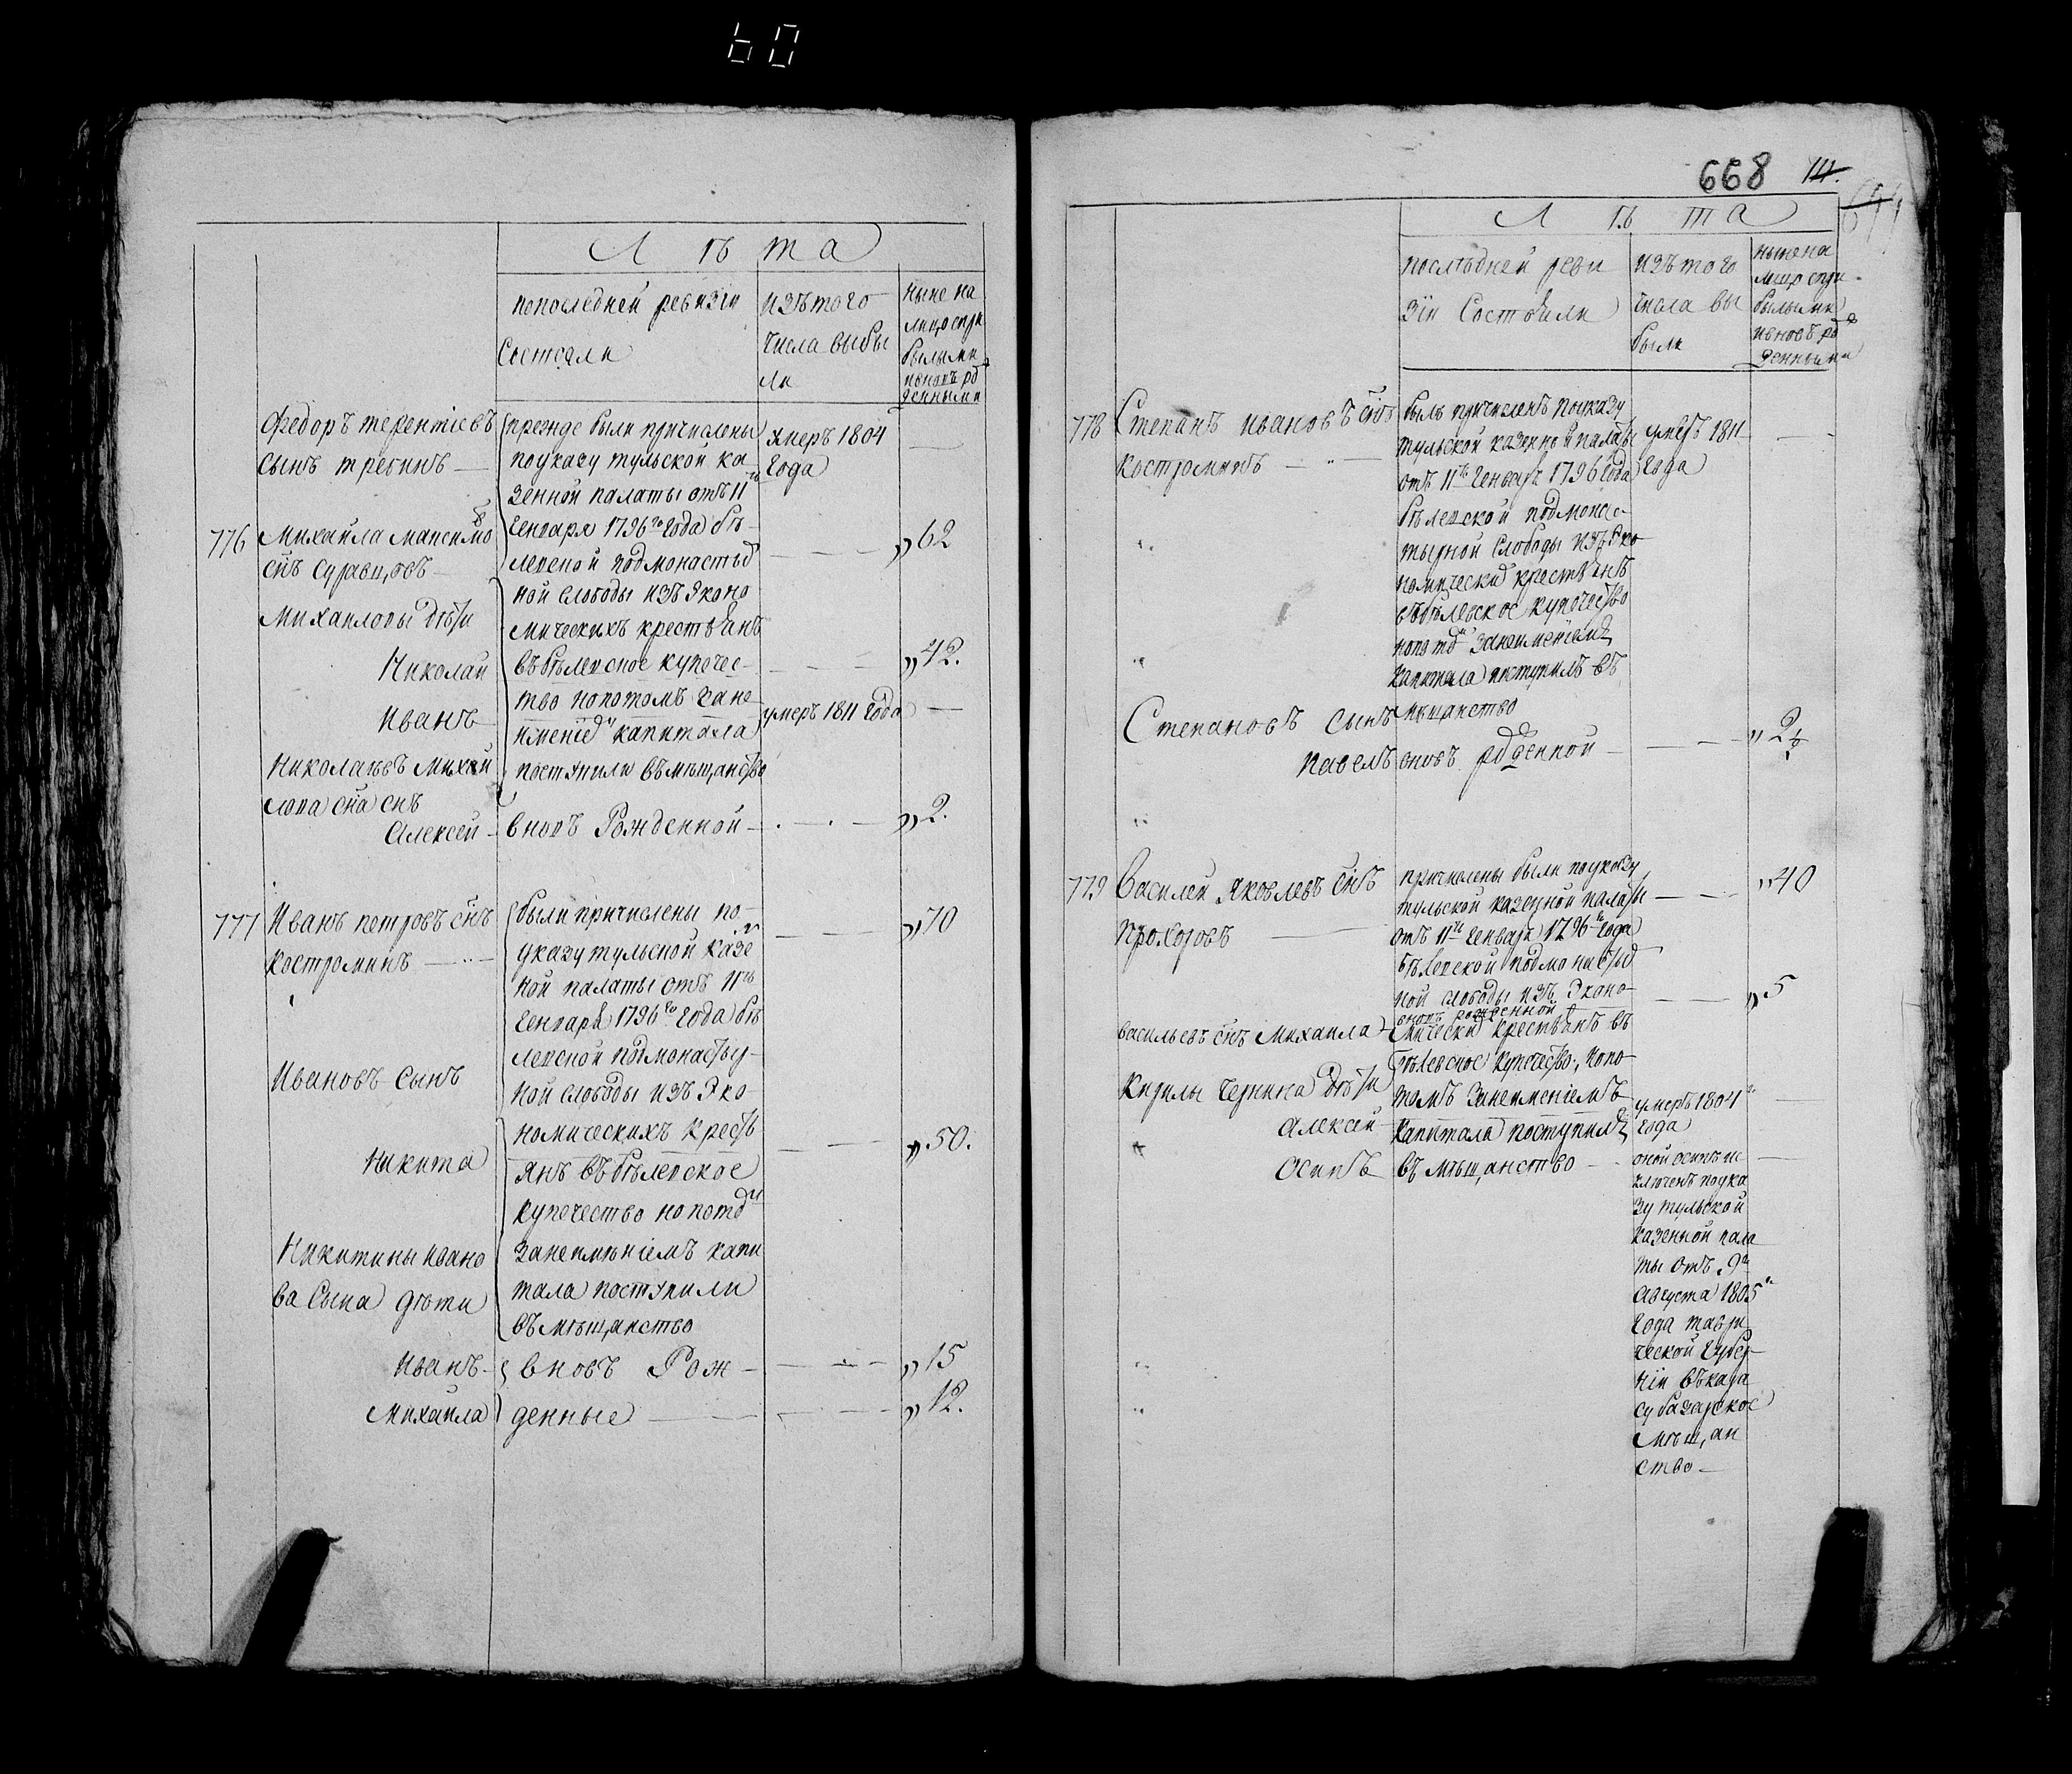 60
Лѣта
попоследней ревизiи
Состояли
изътого
числа выбы
ли
ныне на
лицо спри
былыми
ивновъ рож
денными
Федоръ терентiевъ
сынъ трегинъ
прежде были причислены
поуказу тульской ка
зенной палаты отъ 11го
Генваря 1796го Года бѣ
левской подмонастыр
ной слободы изъ Эконо
мическихъ крестьянъ
въбѣлевское купечес
тво нопотомъ Зане
имѣнiемъ капитала
поступили въмѣщанство
умеръ 1804
Года
776
Михаила максимовъ
снъ суравцовъ
62
Михаиловы дѣти
Николай
42.
Иванъ
умеръ 1811 Года
Николаевъ Михаи
лова сна снъ
Алексей
вновъ Рожденной
2.
777
Иванъ петровъ снъ
костроминъ
были причислены по
указу тульской казен
ной палаты отъ 11го
Генваря 1796го Года бѣ
левской подмонастыр
ной слободы изъ Эко
номическихъ кресть
янъ въбѣлевское
купечество нопотомъ
Занеимѣнiемъ капи
тала поступили
въмѣщанство
70
Ивановъ сынъ
Никита
50.
Никитины ивано
ва Сына дѣти
Иванъ
вновъ Рож
15
Михаила
денные
12.
668
Лѣта
последней реви
зiи Состояли
изътого
числа вы
были
ныне на
лицо спри
былыми
ивновъ рож
денными
778
Степанъ ивановъ снъ
костроминъ
былъ причисленъ поуказу
тульской казенной палаты
отъ 11го Генваря 1796 Года
бѣлевской подмонас
тырной слободы изъ Эко
номически крестьянъ
въбѣлевское купечество
нопотомъ Занеимѣнiемъ
капитала поступилъ въ
мѣщанство
умеръ 1811
Года
Степановъ сынъ
Павелъ
вновъ рожденной
2 1/2
779
Василей Яковлевъ снъ
прохоровъ
причислены были поуказу
тульской казенной палаты
отъ 11го Генваря 1796го Года
бѣлевской подмонастыр
ной слободы изъ Эконо
40
5
Васильевъ снъ Михаила
вновъ рожденной
мически крестьянъ въ
бѣлевское купечество, нопо
томъ Занеимѣнiемъ
капитала поступилъ
въмѣщанство
Кирилы чернина дѣти
Алексей
умеръ 1804го
Года
Осипъ
оной осипъ ис
ключенъ поука
зу тульской
казенной пала
ты отъ 9го
Августа 1805го
Года таври
ческой Губер
нiи вкара
субазарское
мѣщан
ство